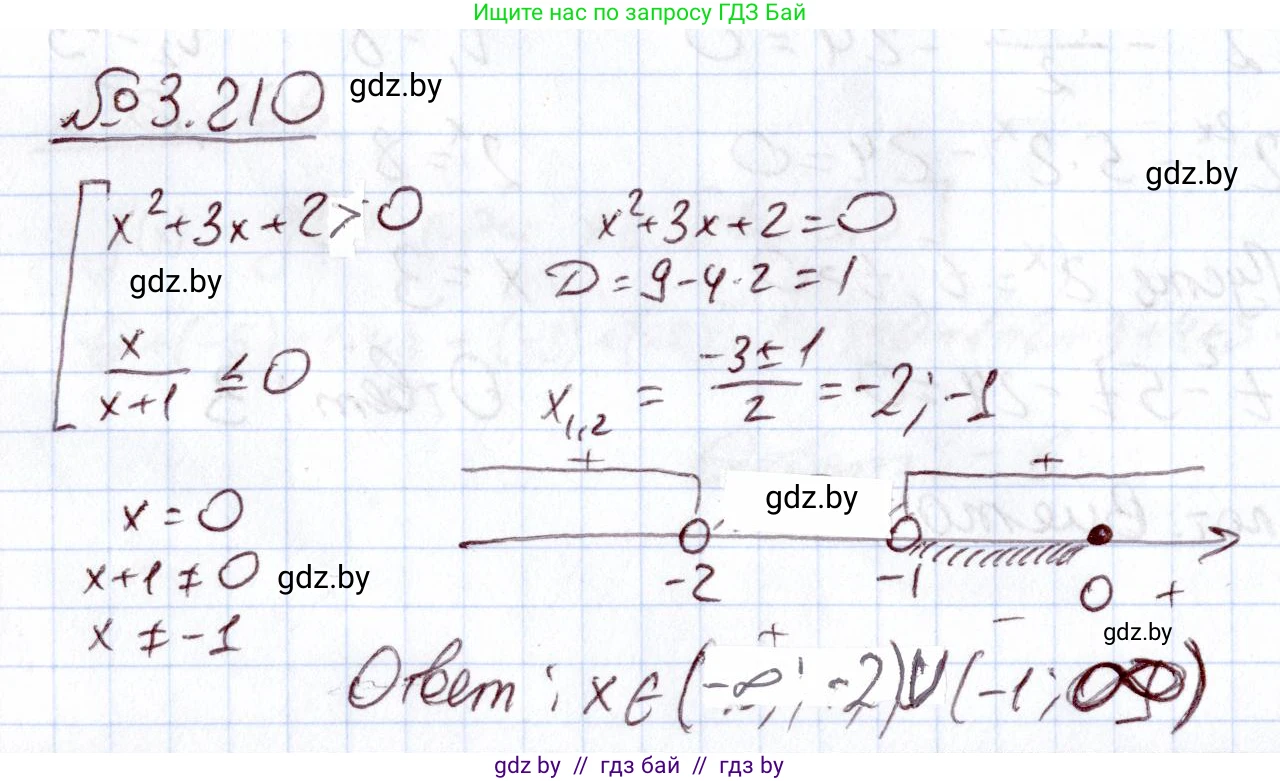 Ищите нас по запросу ГДЗ Бай
№3.210
gdz.by
gdz.by
x²+3x+2>0
x²+3x+2=0
gdz.by
D=9-4·2=1
x/(x+1) ≤ 0
x₁,₂ = (-3±1)/2 = -2; -1
+ +
x = 0
gdz.by
x+1 ≠ 0
gdz.by
-2 -1 0 +
x ≠ -1
+ -
gdz.by
Ответ: x∈(-∞; -2)∪(-1; ∞)
gdz by // гдз бай // гдз by